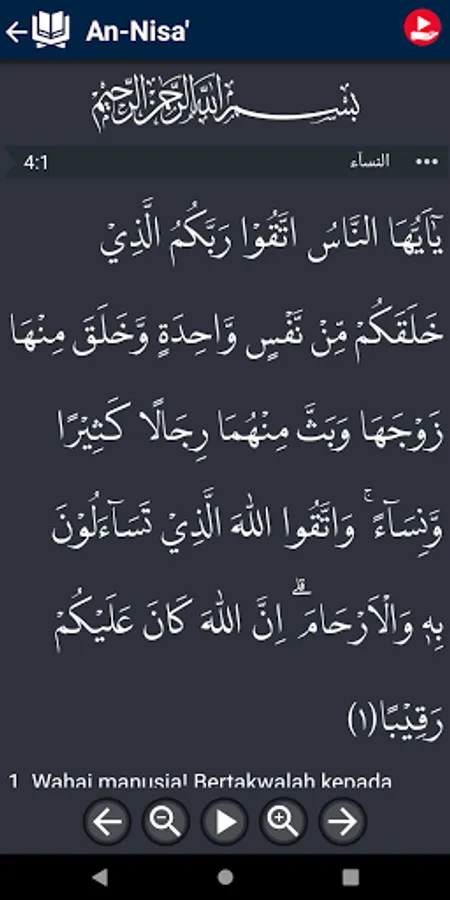 An-Nisa'
بِسْمِ اللَّهِ الرَّحْمَنِ الرَّحِيمِ
4:1 النسآء
يٰٓاَيُّهَا النَّاسُ اتَّقُوْا رَبَّكُمُ الَّذِيْ
خَلَقَكُمْ مِّنْ نَّفْسٍ وَّاحِدَةٍ وَّخَلَقَ مِنْهَا
زَوْجَهَا وَبَثَّ مِنْهُمَا رِجَالًا كَثِيْرًا
وَّنِسَاۤءً ۚ وَاتَّقُوا اللّٰهَ الَّذِيْ تَسَاۤءَلُوْنَ
بِهٖ وَالْاَرْحَامَ ۗ اِنَّ اللّٰهَ كَانَ عَلَيْكُمْ
رَقِيْبًا(١)
1 Wahai manusia! Bertakwalah kepada